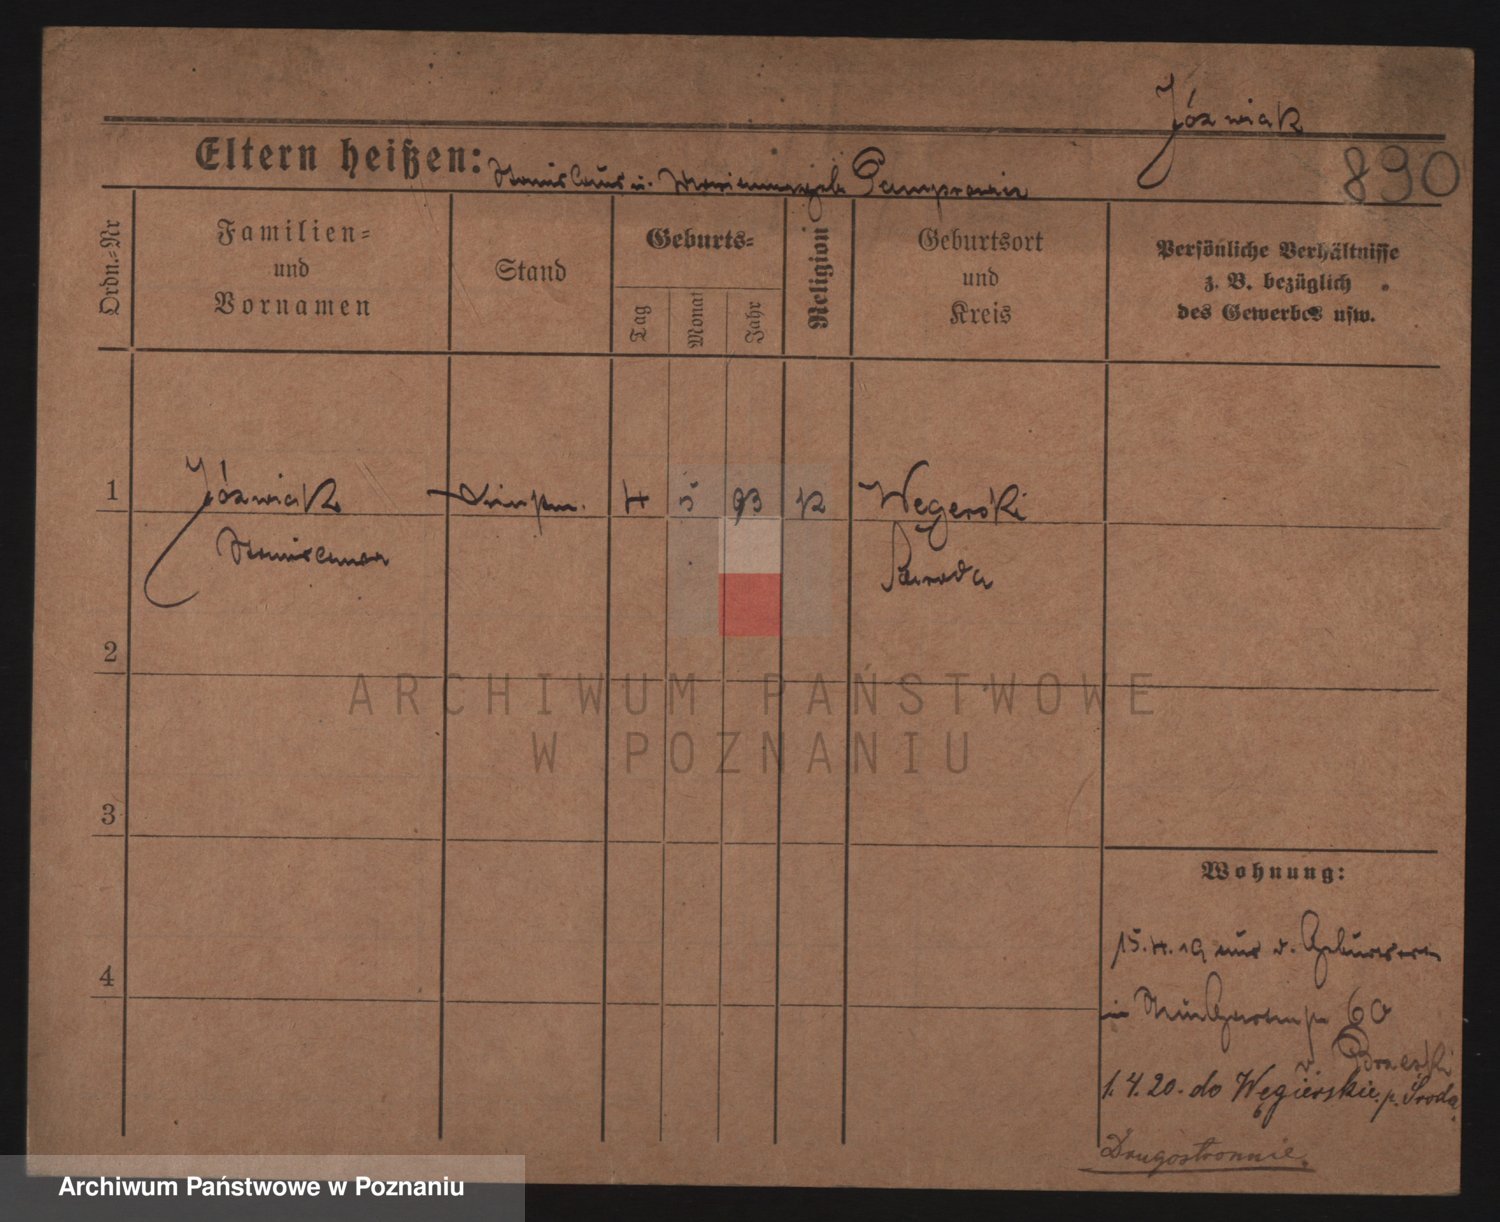 Józwiak
890
Eltern heißen: Stanislaus u. Marianna geb.
Ordn.-Nr
Familien-
und
Vornamen
Stand
Geburts-
Tag
Monat
Jahr
Religion
Geburtsort
und
Kreis
Persönliche Verhältnisse
z. B. bezüglich
des Gewerbes usw.
1
Józwiak
4 5 93 k
Wegerski
Stanislawa
Sroda
2
ARCHIWUM PAŃSTWOWE
W POZNANIU
3
Wohnung:
4
15.4.19 aus d. Geburtsort
in 60
v.
1.4.20. do Węgierskie p. Środa
Drugostronnie.
Archiwum Państwowe w Poznaniu